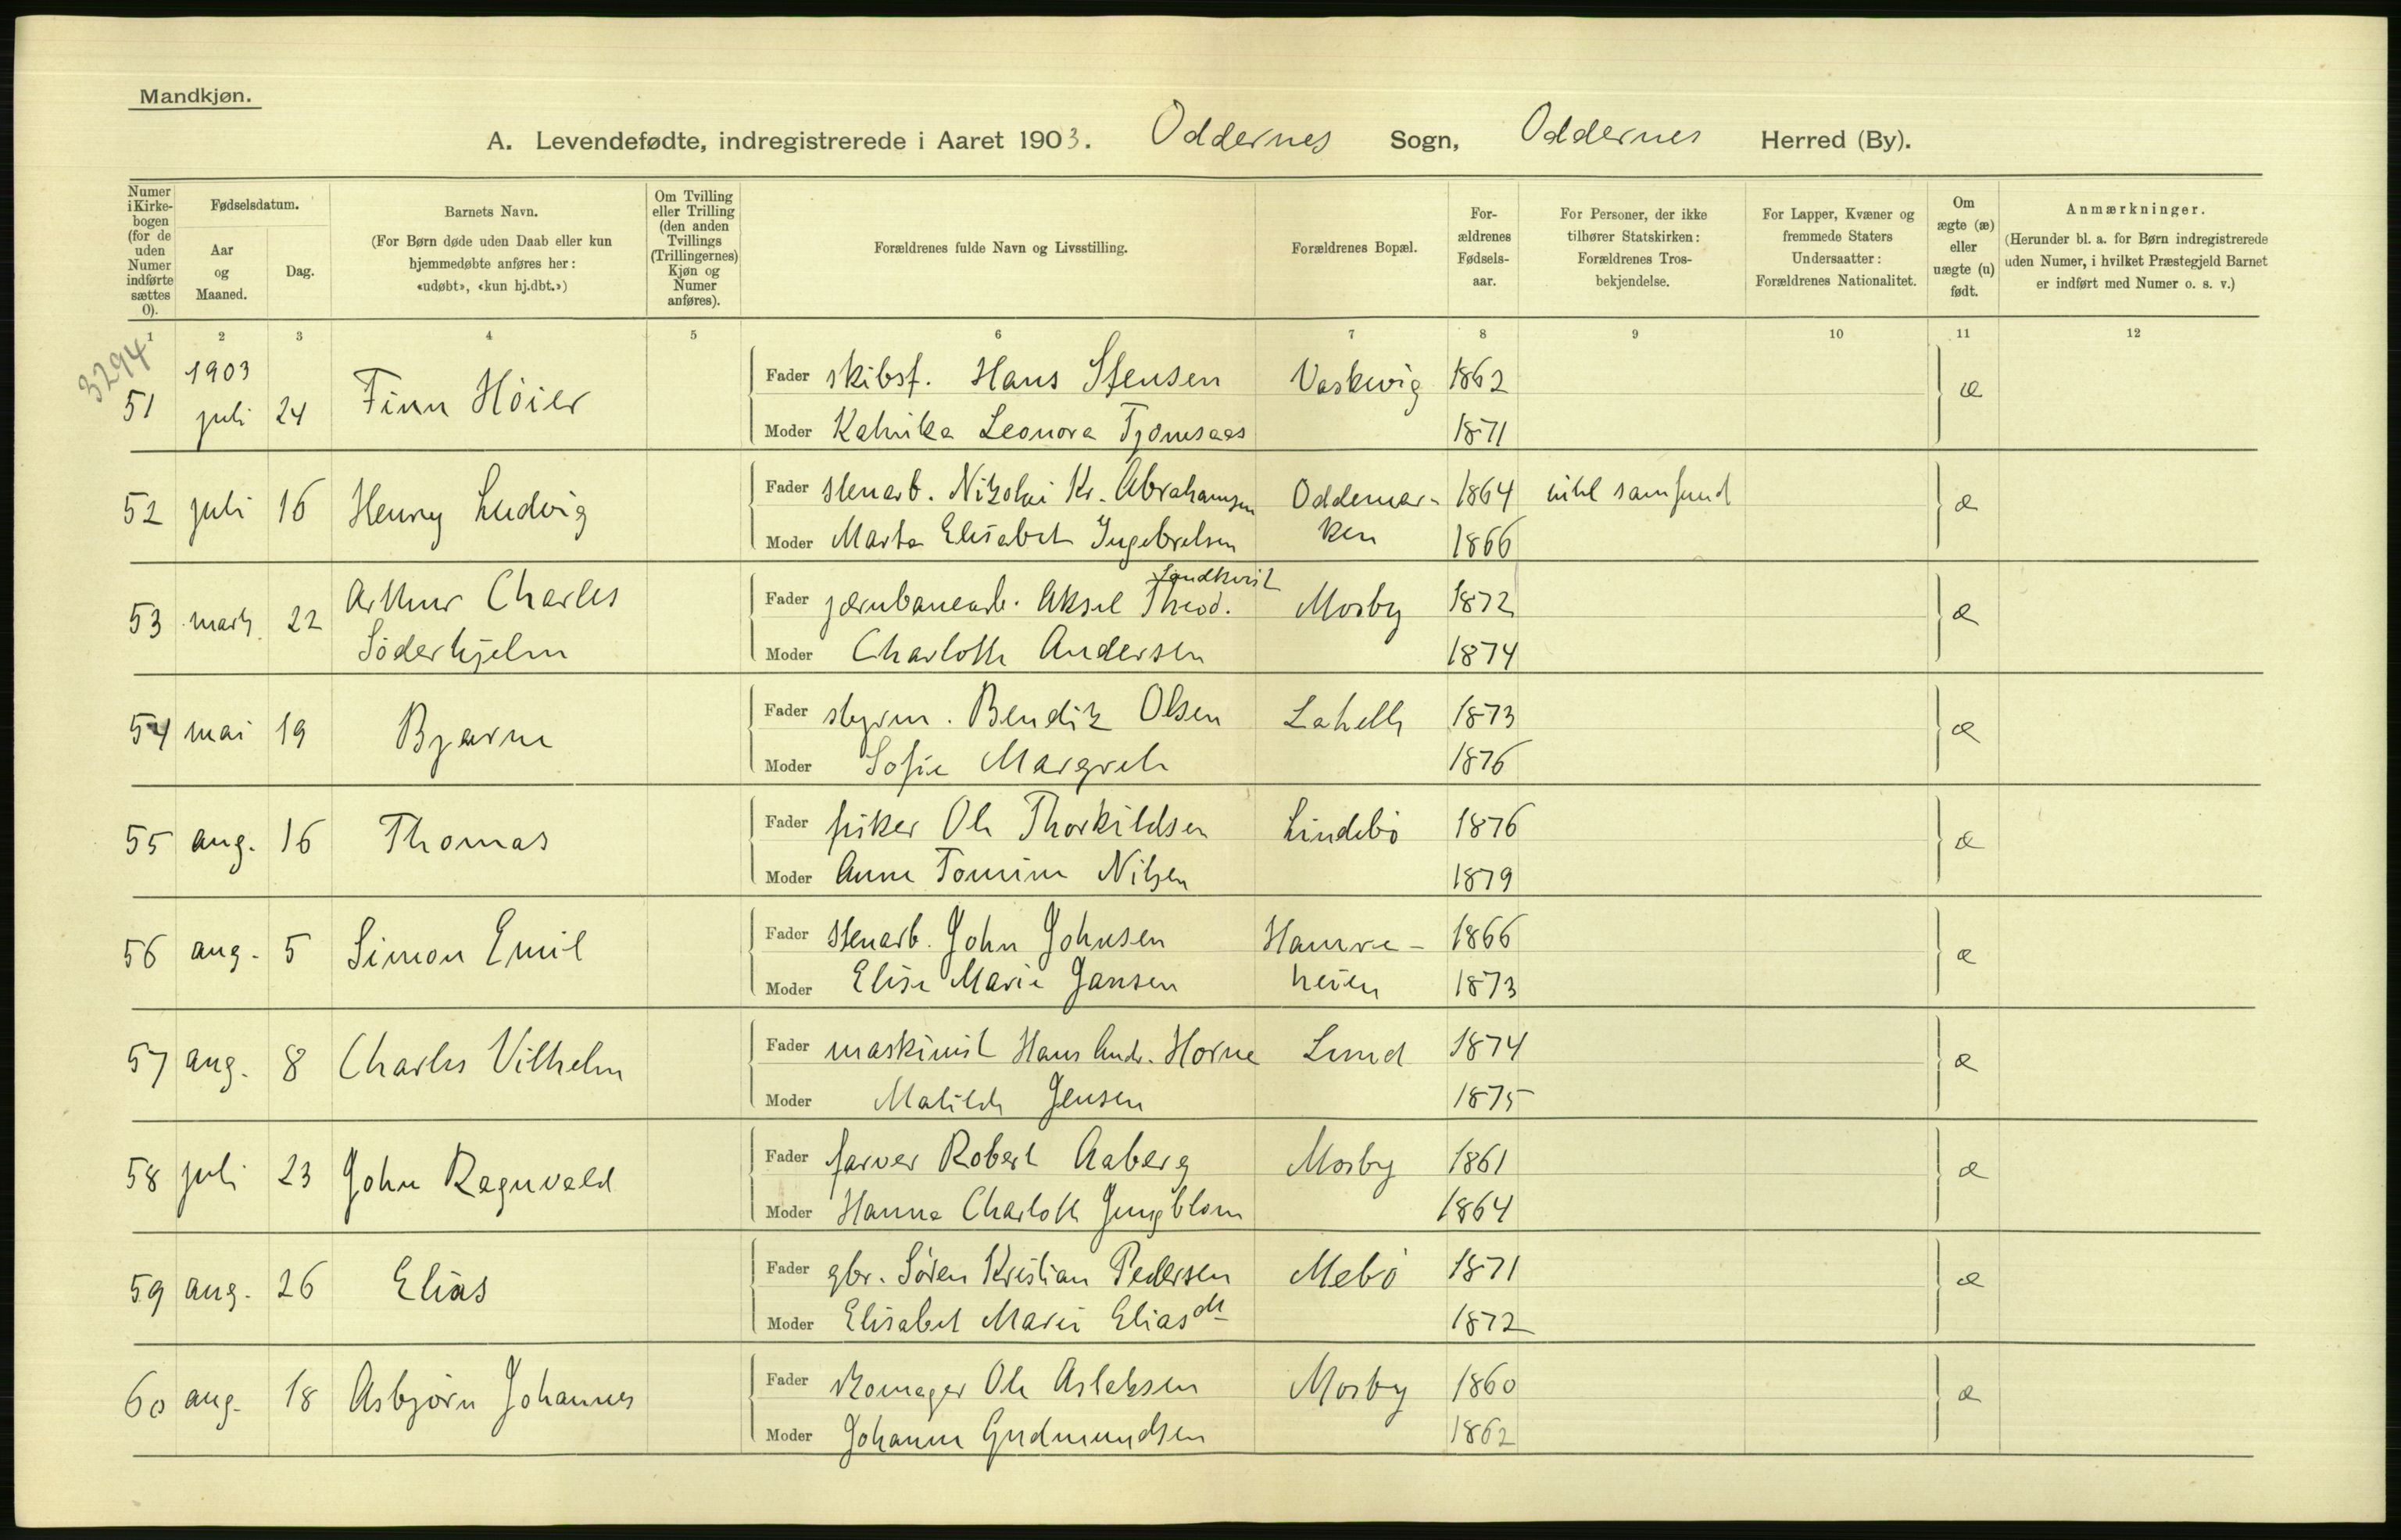 Mandkjøn.
A. Levendefødte, indregistrerede i Aaret 1903. Oddernes Sogn, Oddernes Herred (By).
Numer i Kirkebogen (for de uden Numer indførte sættes 0).
Fødselsdatum.
Aar og Maaned.
Dag.
Barnets Navn.
(For Børn døde uden Daab eller kun hjemmedøbte anføres her: «udøbt», «kun hj.dbt.»)
Om Tvilling eller Trilling (den anden Tvillings (Trillingernes) Kjøn og Numer anføres).
Forældrenes fulde Navn og Livsstilling.
Forældrenes Bopæl.
Forældrenes Fødselsaar.
For Personer, der ikke tilhører Statskirken: Forældrenes Trosbekjendelse.
For Lapper, Kvæner og fremmede Staters Undersaatter: Forældrenes Nationalitet.
Om ægte (æ) eller uægte (u) født.
Anmærkninger.
(Herunder bl. a. for Børn indregistrerede uden Numer, i hvilket Præstegjeld Barnet er indført med Numer o. s. v.)
1 2 3 4 5 6 7 8 9 10 11 12
3294
51 1903 juli 24 Finn Höier Fader skibsf. Hans Stensen Vaskevig 1862 æ
Moder Leonora Tjomsaas 1871
52 juli 16 Henry Ludvig Fader stenarb. Nikolai Kr. Abrahamsen Oddemar- 1864 samfund æ
Moder Marta Elisabet Ingebretsen ken 1866
53 marts 22 Arthur Charles Fader jernbanearb. Aksel Theod. Landkvist Mosby 1872 æ
Söderhjelm Moder Charlotte Andersen 1874
54 mai 19 Bjarne Fader styrm. Bendik Olsen Lahelle 1873 æ
Moder Sofie Margrete 1876
55 aug. 16 Thomas Fader fisker Ole Thorkildsen Lindebö 1876 æ
Moder Anne Tomine Nilsen 1879
56 aug. 5 Simon Emil Fader stenarb. John Johnsen Hamre- 1866 æ
Moder Elise Marie Jansen heien 1873
57 aug. 8 Charles Vilhelm Fader maskinist Hans Andr. Horne Lund 1874 æ
Moder Matilde Jensen 1875
58 juli 23 John Ragnvald Fader farver Robert Aaberg Mosby 1861 æ
Moder Hanna Charlotte Jungblom 1864
59 aug. 26 Elias Fader gbr. Sören Kristian Pedersen Mebö 1871 æ
Moder Elisabet Marie Eliasdt 1872
60 aug. 18 Asbjörn Johannes Fader skomager Ole Aslaksen Mosby 1860 æ
Moder Johanne Gudmundsen 1862